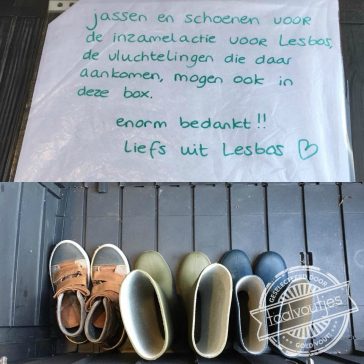 jassen en schoenen voor
de inzamelactie voor Lesbos,
de vluchtelingen die daar
aankomen, mogen ook in
deze box.
enorm bedankt!!
Liefs uit Lesbos ♡
GESELECTEERD DOOR
Taalvoutjes
GOEDVOUT